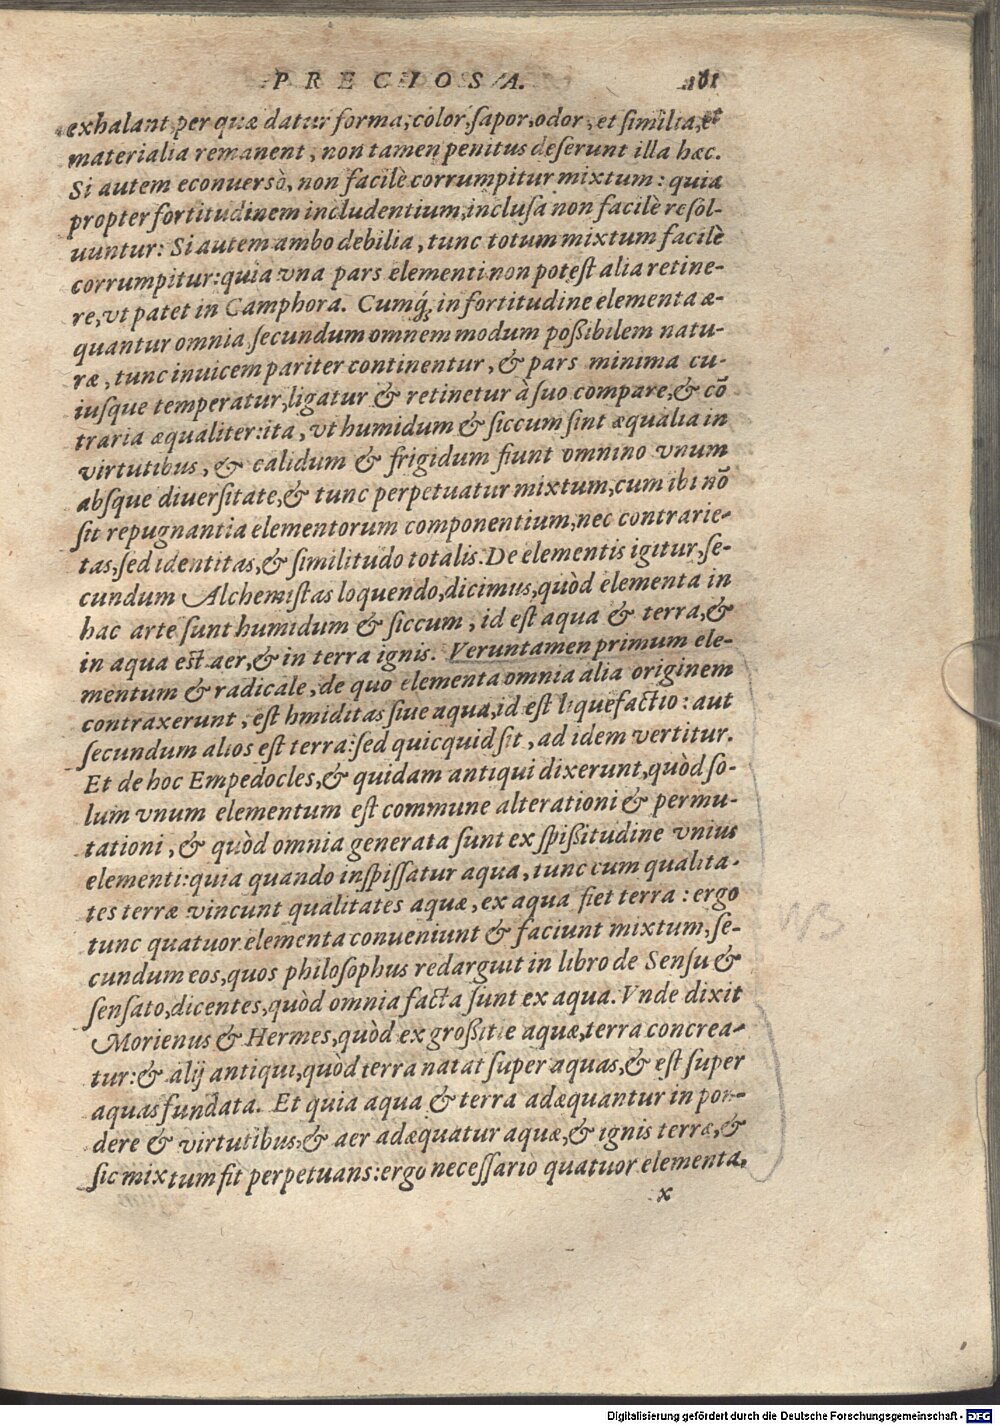 PRECIOSA. 161
exhalant, per quæ datur forma, color, sapor, odor, et similia, et
materialia remanent, non tamen penitus deserunt illa hæc.
Si autem econuersò, non facilè corrumpitur mixtum: quia
propter fortitudinem includentium, inclusa non facilè resol-
uuntur: Si autem ambo debilia, tunc totum mixtum facilè
corrumpitur: quia vna pars elementi non potest alia retine-
re, vt patet in Camphora. Cumq́; in fortitudine elementa æ-
quantur omnia, secundum omnem modum poßibilem natu-
ræ, tunc inuicem pariter continentur, & pars minima cu-
iusque temperatur, ligatur & retinetur à suo compare, & cō
traria æqualiter: ita, vt humidum & siccum sint æqualia in
virtutibus, & calidum & frigidum fiunt omnino vnum
absque diuersitate, & tunc perpetuatur mixtum, cum ibi nō
sit repugnantia elementorum componentium, nec contrarie-
tas, sed identitas, & similitudo totalis. De elementis igitur, se-
cundum Alchemistas loquendo, dicimus, quòd elementa in
hac arte sunt humidum & siccum, id est aqua & terra, &
in aqua est aer, & in terra ignis. Veruntamen primum ele-
mentum & radicale, de quo elementa omnia alia originem
contraxerunt, est hmiditas siue aqua, id est liquefactio: aut
secundum alios est terra: sed quicquid sit, ad idem vertitur.
Et de hoc Empedocles, & quidam antiqui dixerunt, quòd so-
lum vnum elementum est commune alterationi & permu-
tationi, & quòd omnia generata sunt ex spißitudine vnius
elementi: quia quando inspissatur aqua, tunc cum qualita-
tes terræ vincunt qualitates aquæ, ex aqua fiet terra: ergo
tunc quatuor elementa conueniunt & faciunt mixtum, se-
cundum eos, quos philosophus redarguit in libro de Sensu &
sensato, dicentes, quòd omnia facta sunt ex aqua. Vnde dixit
Morienus & Hermes, quòd ex großitie aquæ, terra concrea-
tur: & alij antiqui, quòd terra natat super aquas, & est super
aquas fundata. Et quia aqua & terra adæquantur in pon-
dere & virtutibus, & aer adæquatur aquæ, & ignis terræ, &
sic mixtum fit perpetuans: ergo necessariò quatuor elementa,
x
NB
Digitalisierung gefördert durch die Deutsche Forschungsgemeinschaft - DFG